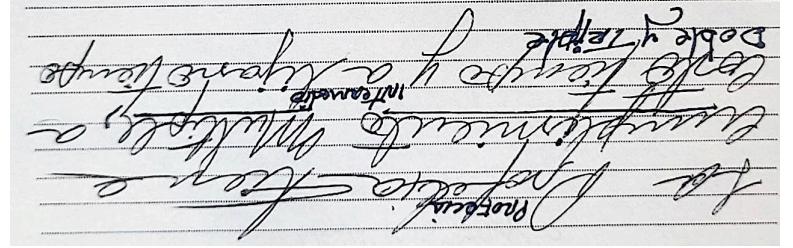 PROFECIA
La Profecia tiene
cumplimiento Multiple, a
INTERMEDIO
corto tiempo y a lijano tiempo
Doble y TRIPLE